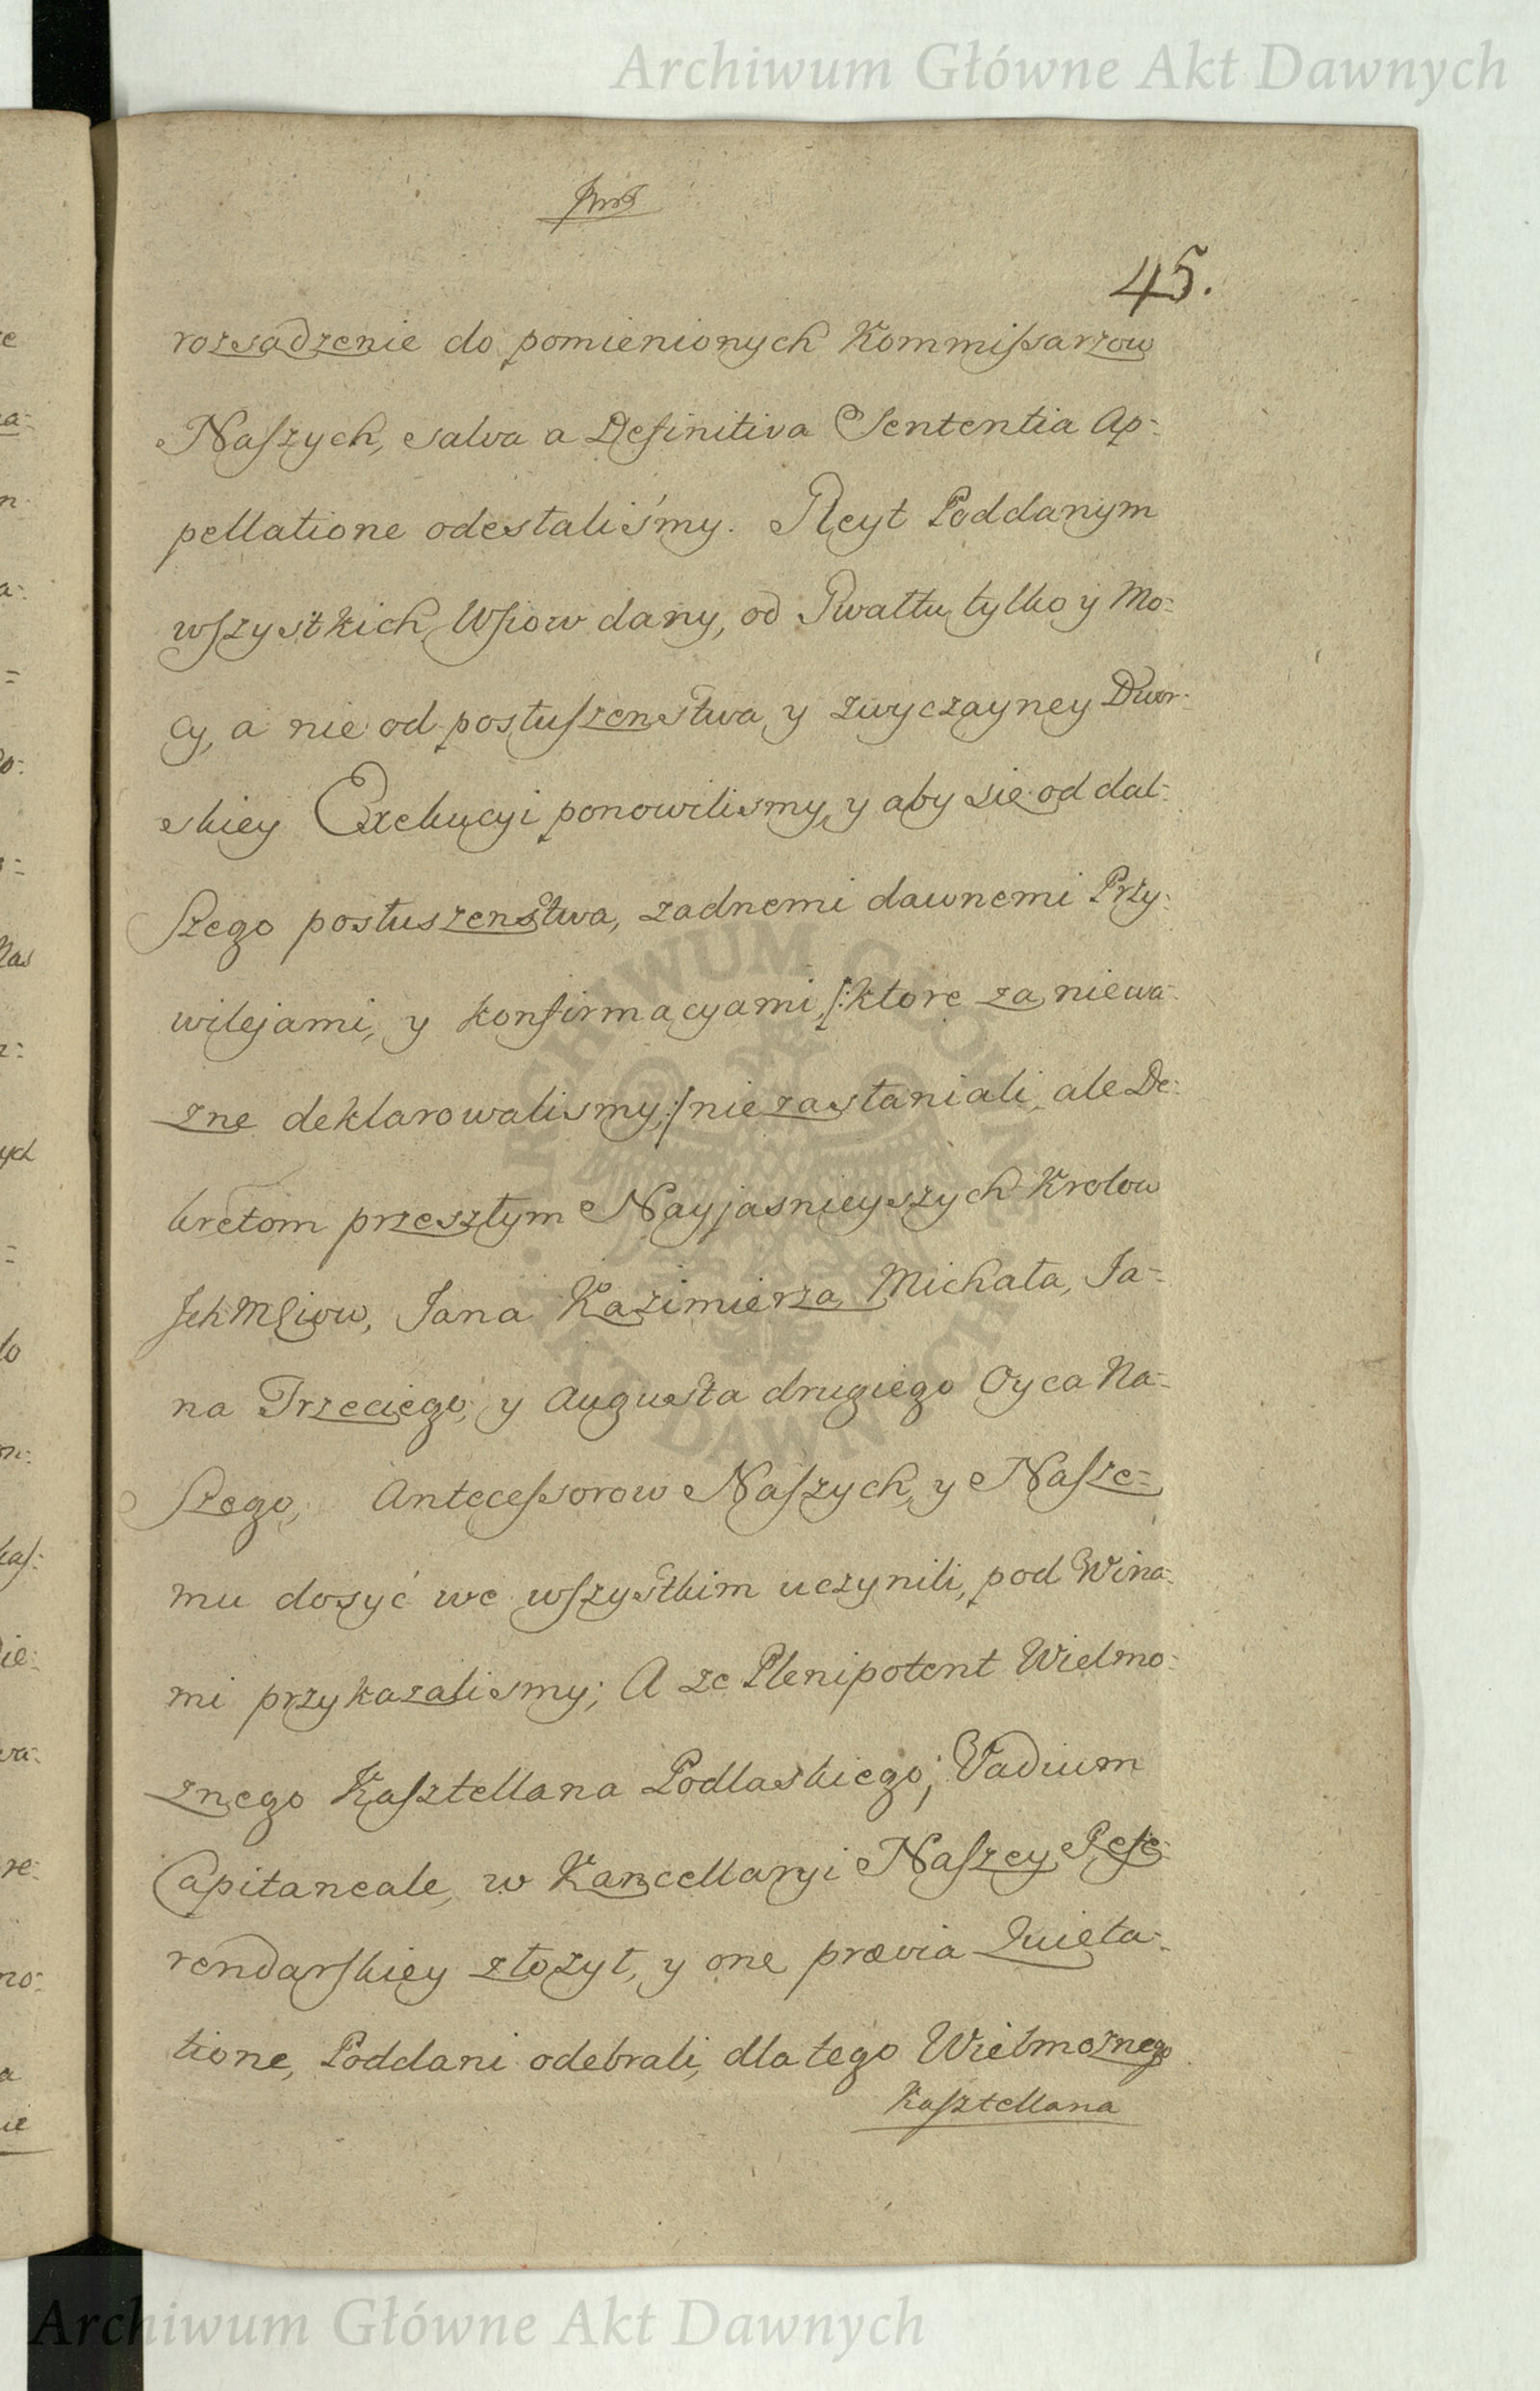 Archiwum Główne Akt Dawnych
45.
rozsądzenie do pomienionych Kommissarzow
Naszych, salva a Definitiva Sententia Ap-
pellatione odesłaliśmy. Reyt Poddanym
wszystkich Wsiow dany, od Gwałtu tylko y Mo-
cy, a nie od posłuszenstwa y zwyczayney Dwor-
skiey Exekucyi ponowilismy, y aby sie od dal-
szego posłuszenstwa, zadnemi dawnemi Przy-
wilejami, y konfirmacyami /:ktore za niewa-
zne deklarowalismy:/ nie zasłaniali, ale De-
kretom przeszłym Nayjasnieyszych Krolow
Ich Mciow, Jana Kazimierza, Michała, Ja-
na Trzeciego, y Augusta drugiego Oyca Na-
szego, Antecessorow Naszych, y Nasze-
mu dosyć we wszystkim uczynili, pod Wina-
mi przykazalismy; A ze Plenipotent Wielmo-
znego Kasztellana Podlaskiego; Vadium
Capitaneale, w Kancellaryi Naszey Refe-
rendarskiey złozył, y one prævia Quieta-
tione, Poddani odebrali, dla tego Wielmoznego
Kasztellana
ARCHIWUM GŁÓWNE AKT DAWNYCH
Archiwum Główne Akt Dawnych